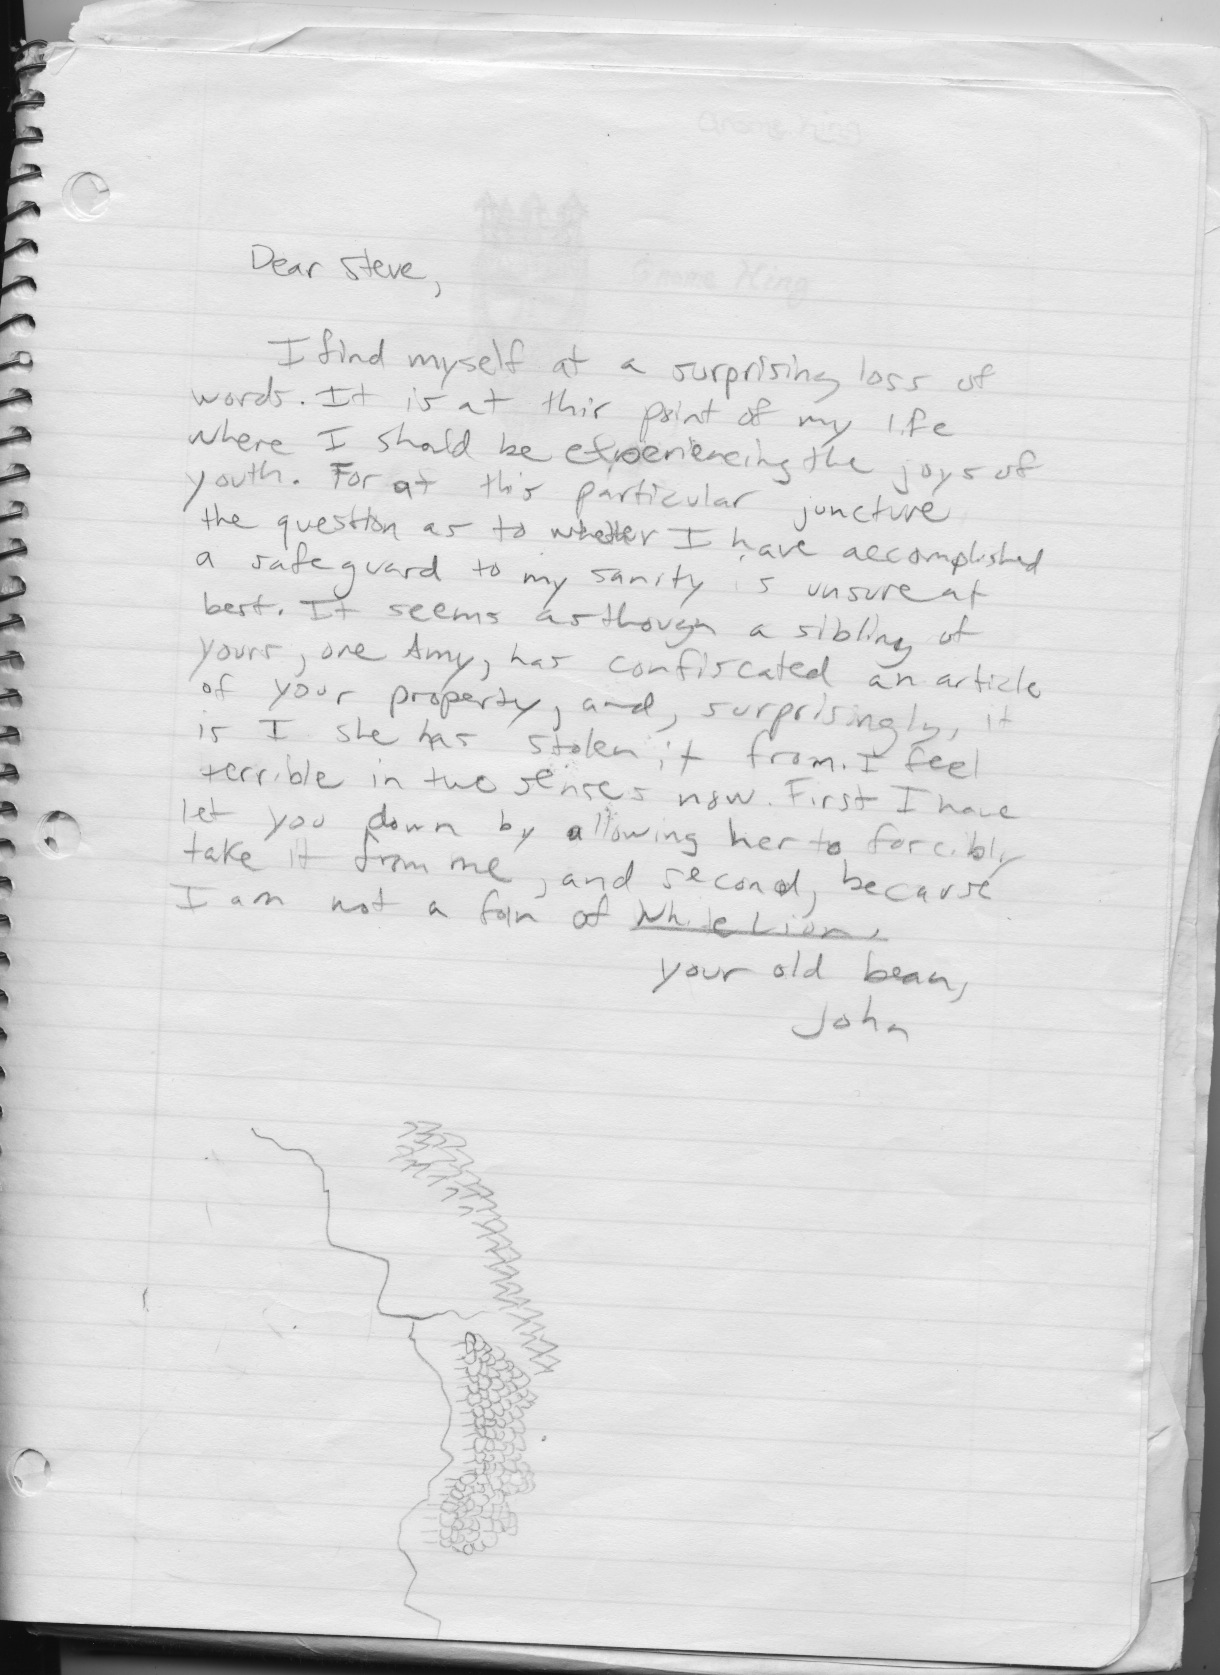 Gnome King
Gnome King
Dear Steve,
I find myself at a surprising loss of
words. It is at this point of my life
where I should be experiencing the joys of
youth. For at this particular juncture
the question as to whether I have accomplished
a safeguard to my sanity is unsure at
best. It seems as though a sibling of
yours, one Amy, has confiscated an article
of your property, and, surprisingly, it
is I she has stolen it from. I feel
terrible in two senses now. First I have
let you down by allowing her to forcibly
take it from me, and second, because
I am not a fan of White Lion.
your old bean,
John